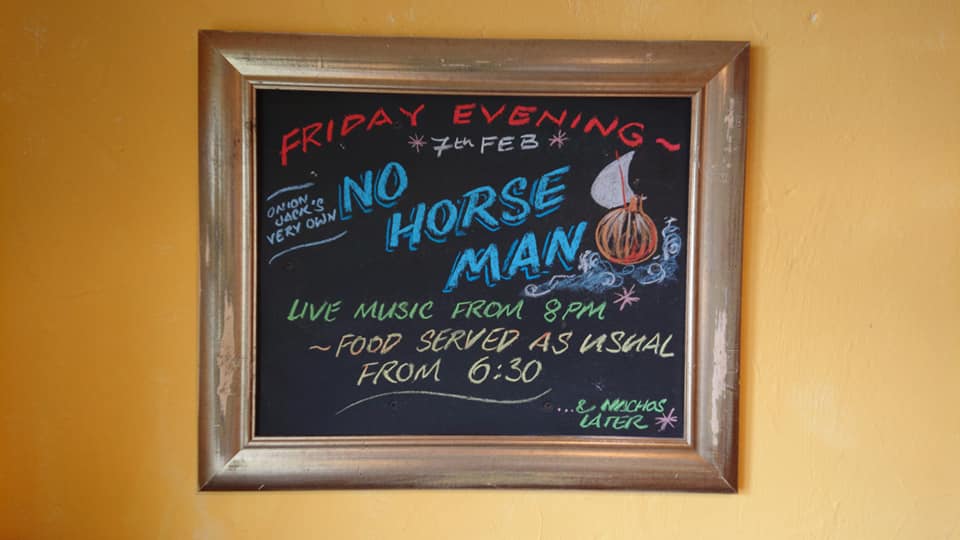 FRIDAY EVENING ~
* 7th FEB *
ONION
JACK'S
VERY OWN
NO
HORSE
MAN
LIVE MUSIC FROM 8PM *
~ FOOD SERVED AS USUAL
FROM 6:30
...& NACHOS
LATER *